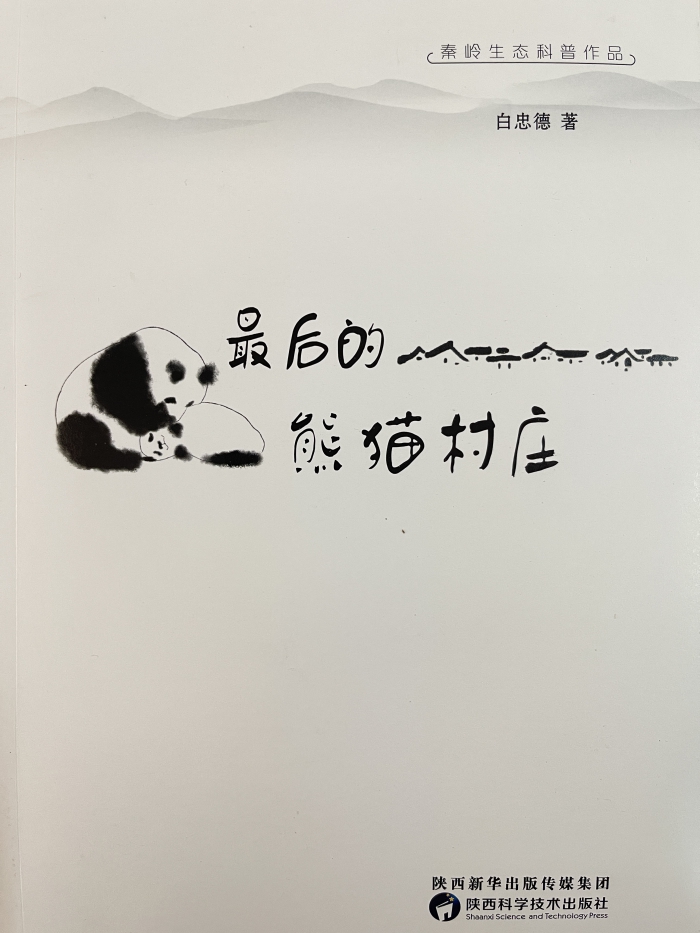 秦岭生态科普作品
白忠德 著
最后的
熊猫村庄
陕西新华出版传媒集团
陕西科学技术出版社
Shaanxi Science and Technology Press